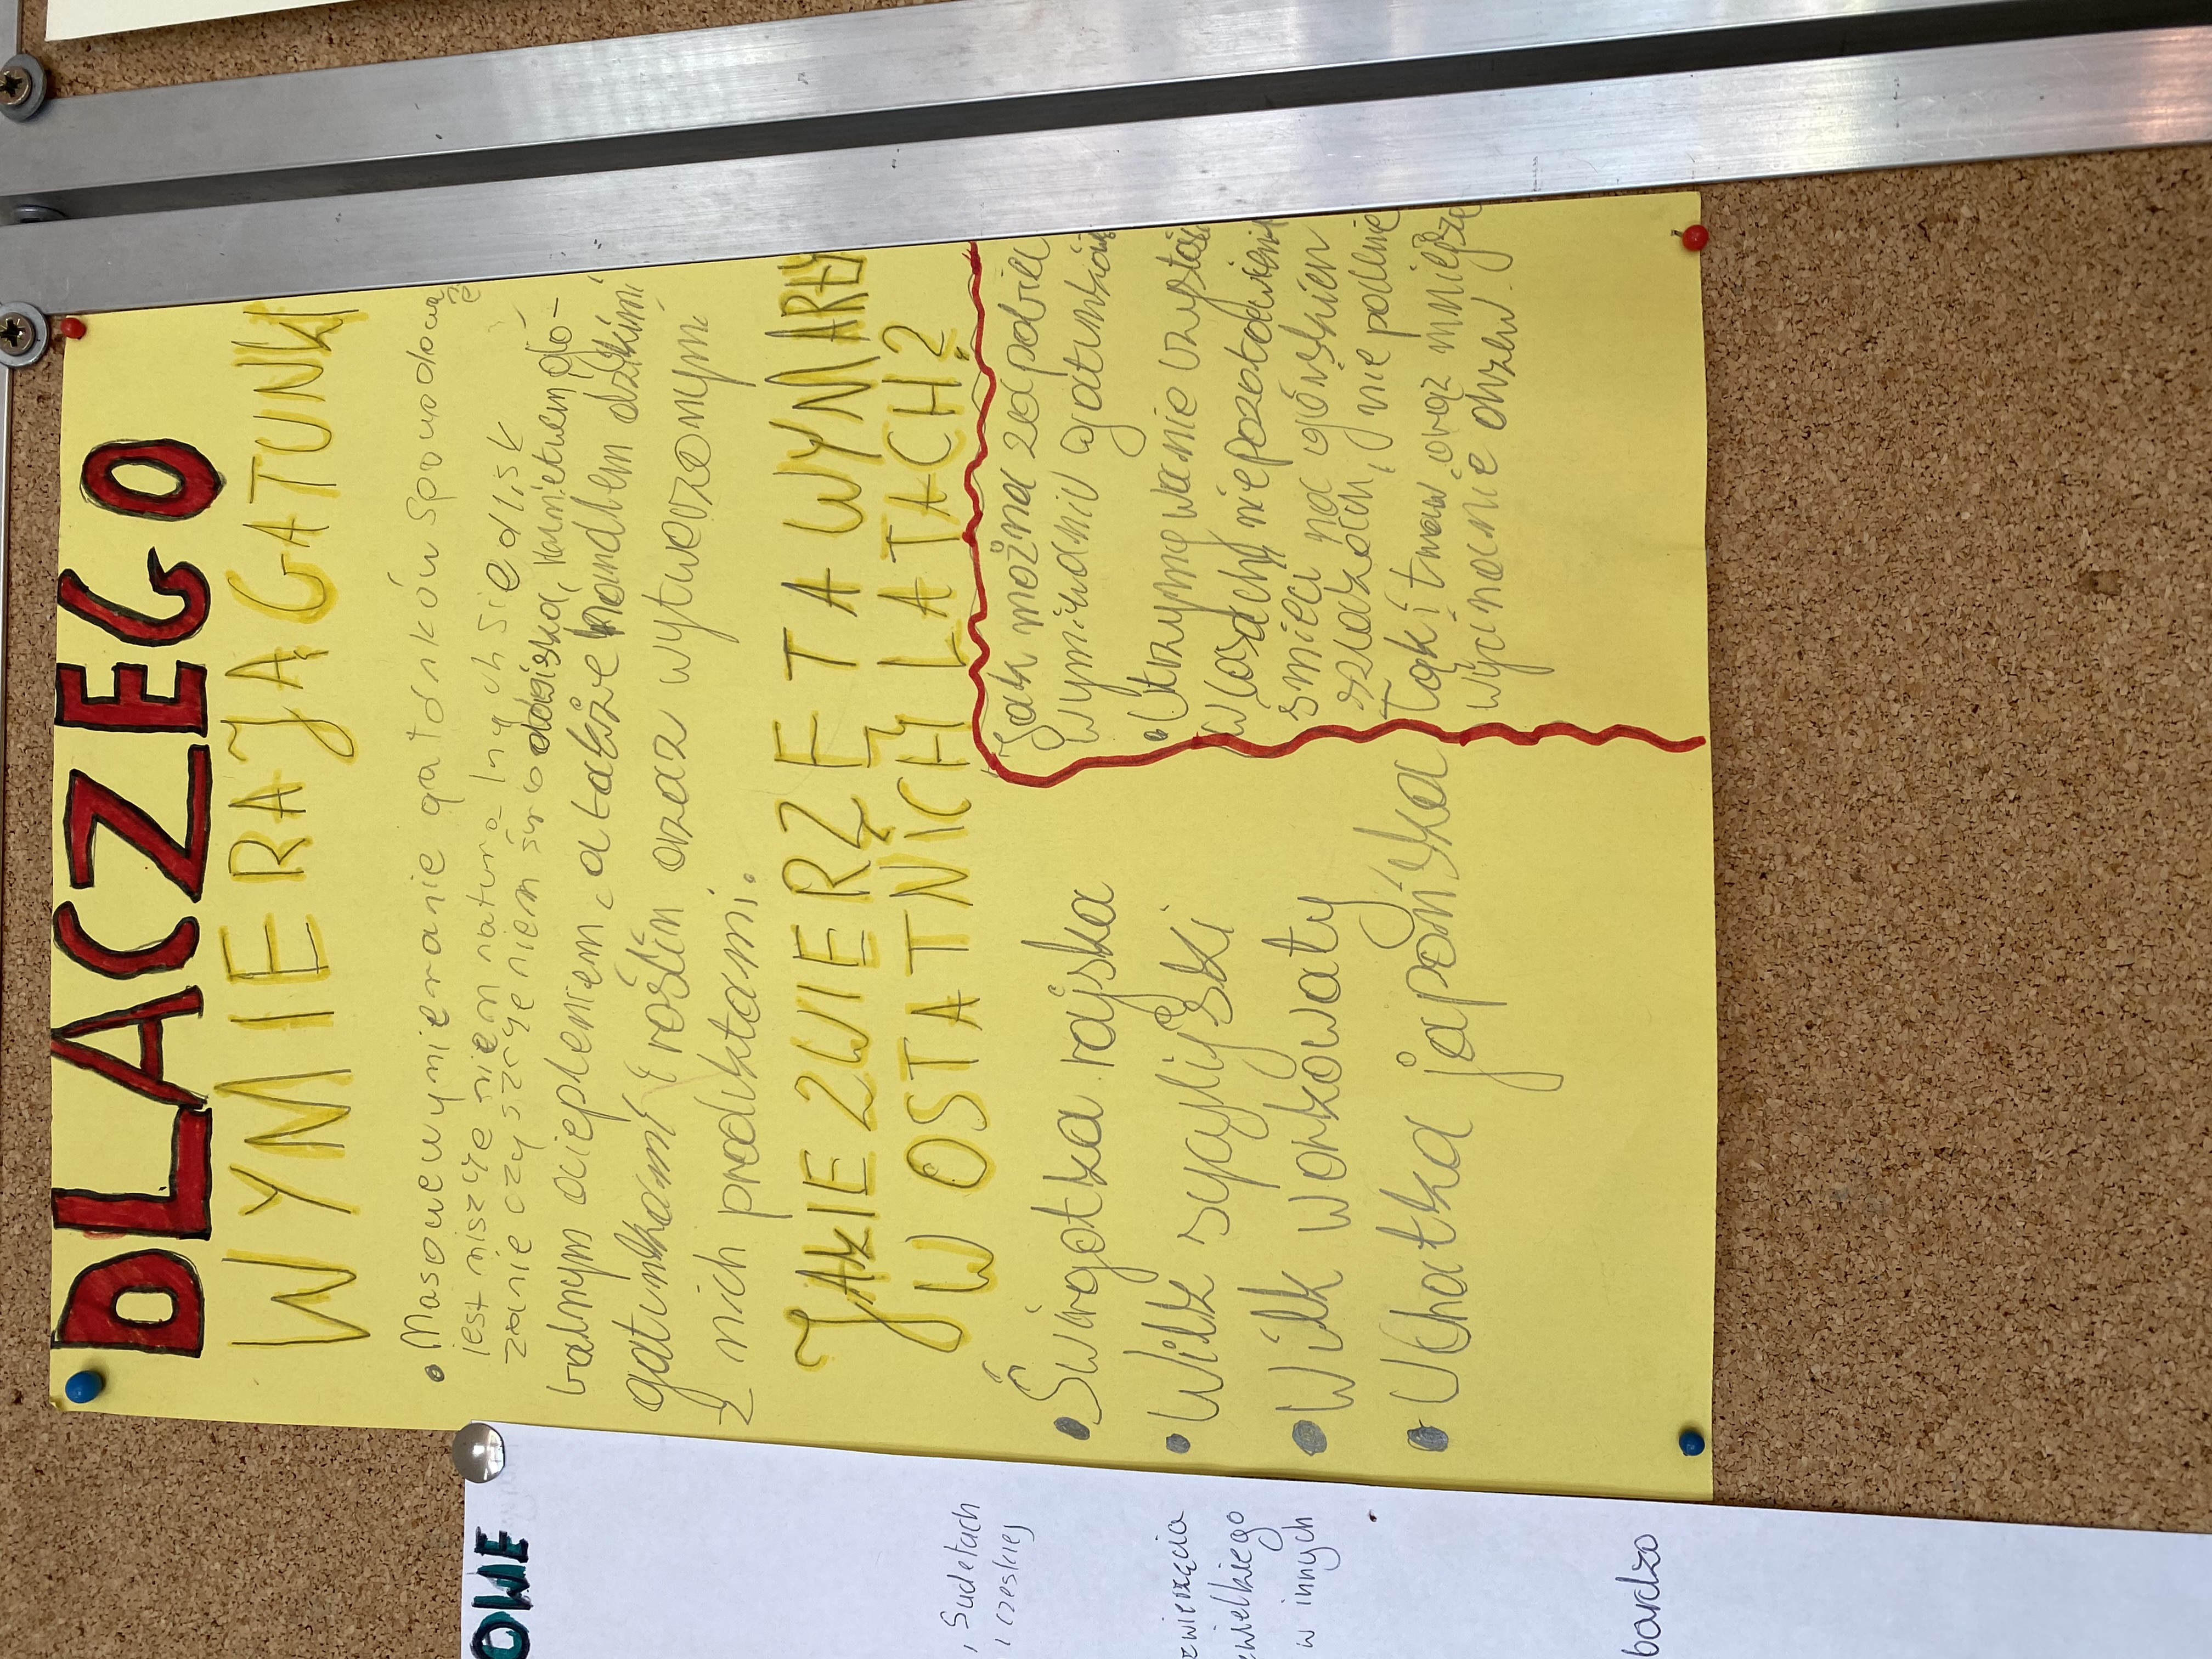 DLACZEGO
WYMIERAJĄ GATUNKI
• Masowe wymieranie gatunków spowodowane
jest niszczeniem naturalnych siedlisk
zanieczyszczeniem środowiska, klimatem glo-
balnym ociepleniem, a także handlem dzikimi
gatunkami i roślin oraz wytworzonymi
z nich produktami.
JAKIE ZWIERZĘTA WYMARŁY
W OSTATNICH LATACH?
• Świergotka rajska
• Wilk sycylijski
• Wilk workowaty
• Uchatka japońska
Jak można zapobiec
wymieraniu gatunków
• Utrzymywanie czystości
w lasach, niepozostawienie
śmieci na górskich
szlakach, nie palenie
łąk i traw oraz mniejsze
wycinanie drzew.
OWE
, Sudetach
, czeskiej
zwierzęcia
ewielkiego
w innych
bardzo